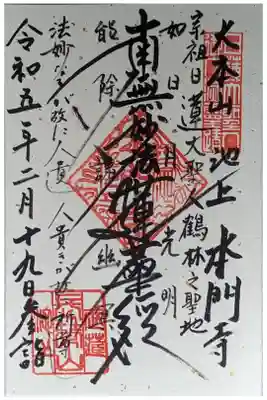 大本山 池上 本門寺
宗祖日蓮大聖人鶴林之聖地
如日月光明
南無妙法蓮華経
能除諸幽
法妙なるが故に人貴し
人貴きが故に所尊
令和五年二月十九日参詣